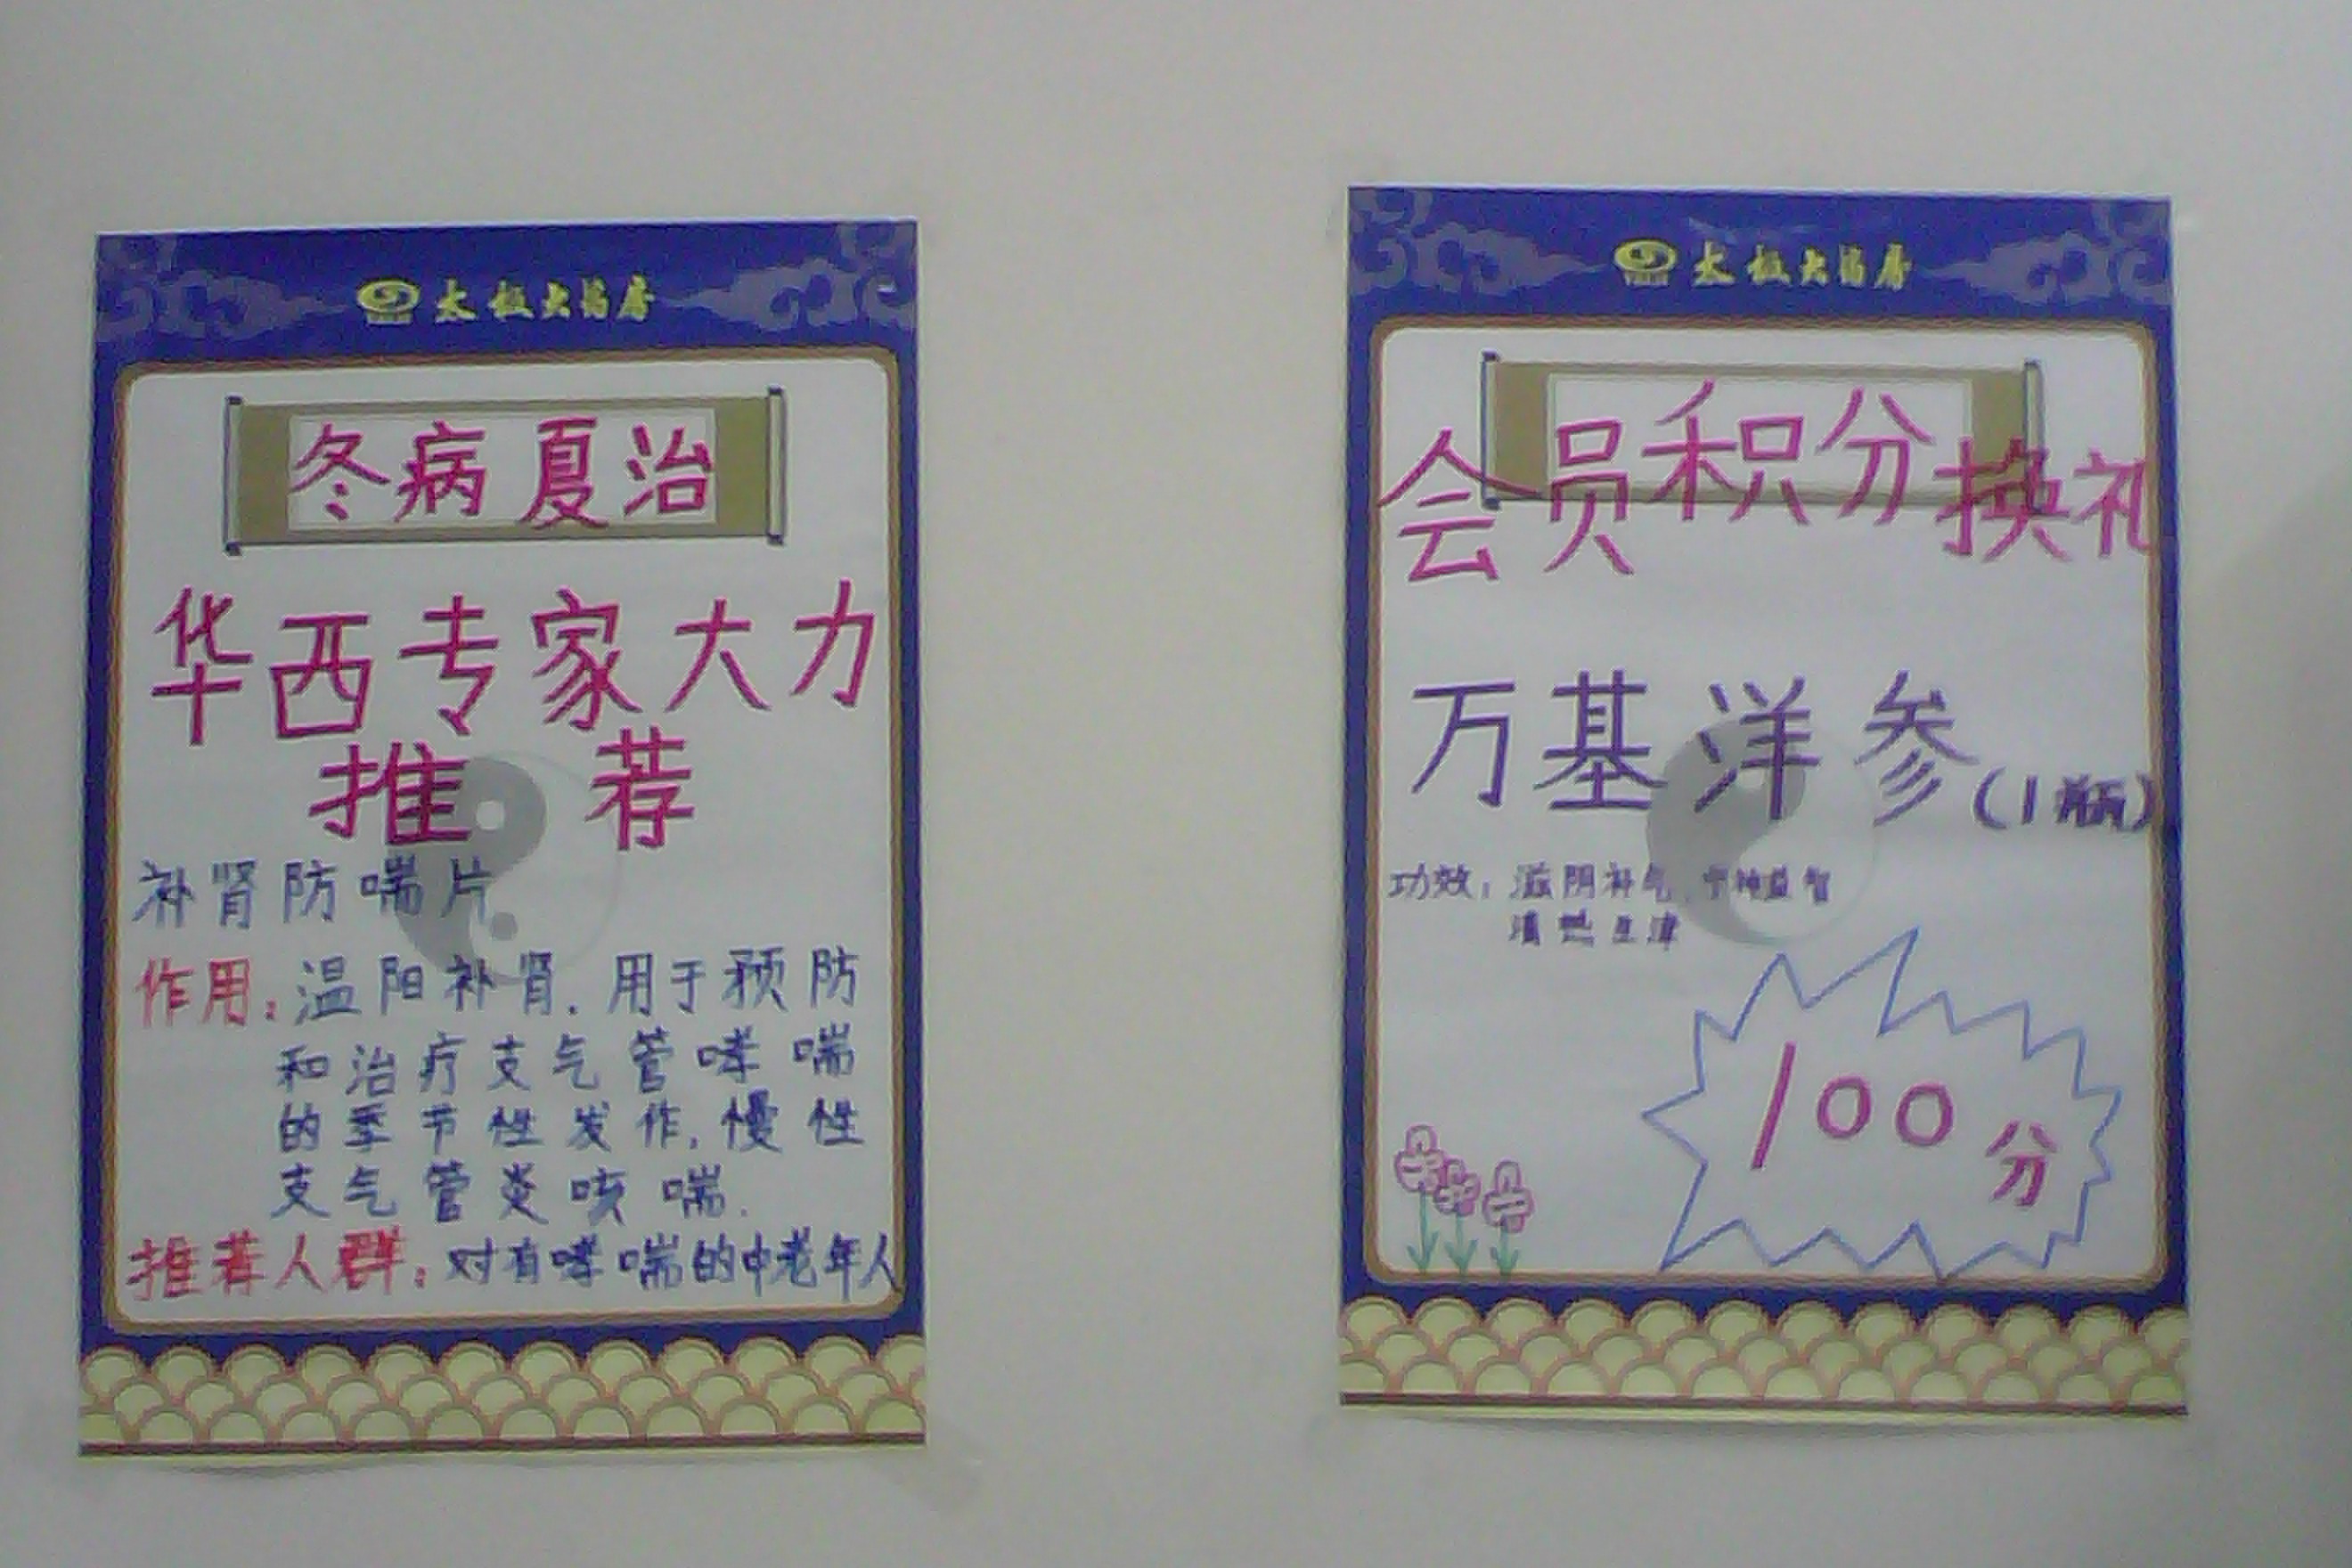 太极大药房
冬病夏治
华西专家大力
推荐
补肾防喘片
作用:温阳补肾.用于预防
和治疗支气管哮喘
的季节性发作,慢性
支气管炎咳喘.
推荐人群:对有哮喘的中老年人
太极大药房
会员积分换礼
万基洋参(1瓶)
功效:滋阴补气 宁神益智
清热生津
100分